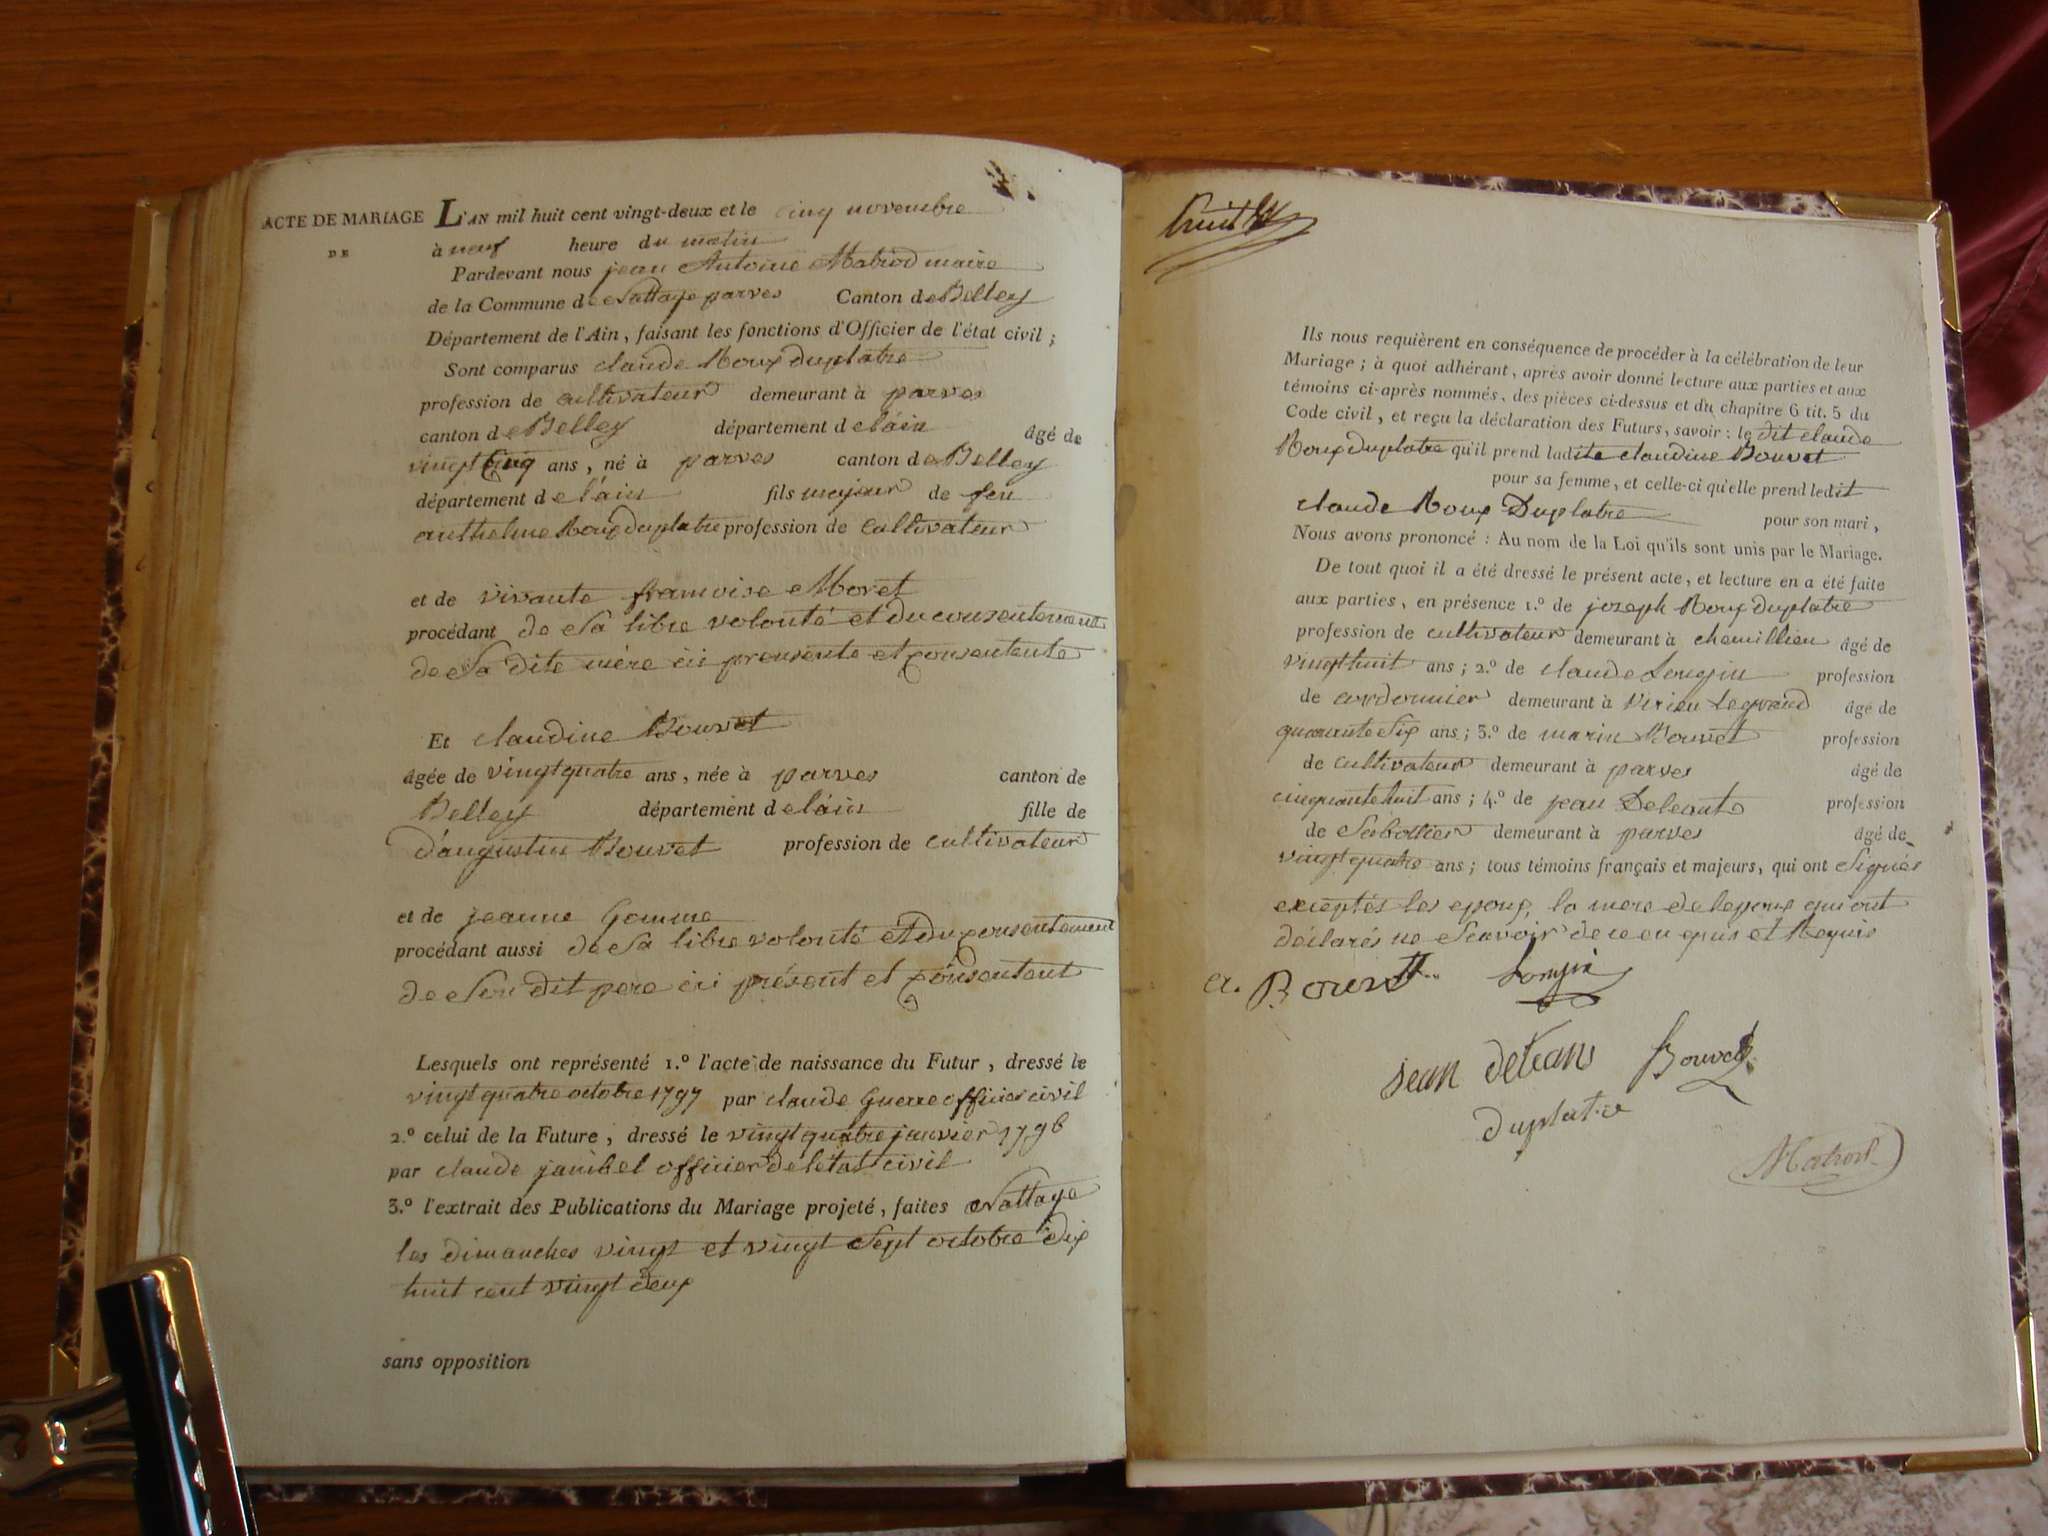 ACTE DE MARIAGE
DE
L'AN mil huit cent vingt-deux et le cinq novembre
à neuf heure du matin
Pardevant nous jean Antoine Matrod maire
de la Commune de Nattage parves Canton de Belley
Département de l'Ain, faisant les fonctions d'Officier de l'état civil ;
Sont comparus claude Roux duplatre
profession de cultivateur demeurant à parves
canton de Belley département de láin âgé de
vingt Cinq ans, né à parves canton de Belley
département de láin fils majeur de feu
anthelme Roux duplatre profession de Cultivateur
et de vivante francoise Moret
procédant de Sa libre volonté et du consentement
de Sa dite mère ici presente et consentente
Et claudine Bouvet
âgée de vingt quatre ans, née à parves canton de
Belley département de láin fille de
d'augustin Bouvet profession de cultivateur
et de jeanne Gomme
procédant aussi de Sa libre volonté et du consentement
de Son dit pere ici présent et consentent
Lesquels ont représenté 1.º l'acte de naissance du Futur, dressé le
vingt quatre octobre 1797 par claude Guerre officier civil
2.º celui de la Future, dressé le vingt quatre janvier 1798
par claude janibel officier de létat civil
3.º l'extrait des Publications du Mariage projeté, faites Nattage
les dimanches vingt et vingt Sept octobre dix
huit cent vingt deux
sans opposition
Ils nous requièrent en conséquence de procéder à la célébration de leur
Mariage ; à quoi adhérant, après avoir donné lecture aux parties et aux
témoins ci-après nommés, des pièces ci-dessus et du chapitre 6 tit. 5 du
Code civil, et reçu la déclaration des Futurs, savoir : le dit claude
Roux duplatre qu'il prend ladite claudine Bouvet
pour sa femme, et celle-ci qu'elle prend ledit
claude Roux Duplatre pour son mari,
Nous avons prononcé : Au nom de la Loi qu'ils sont unis par le Mariage.
De tout quoi il a été dressé le présent acte, et lecture en a été faite
aux parties, en présence 1.º de joseph Roux duplatre
profession de cultivateur demeurant à chemillieu âgé de
vingt huit ans ; 2.º de claude Longin profession
de cordonnier demeurant à Virieu Legrand âgé de
quarante Six ans ; 3.º de marin Bouvet profession
de cultivateur demeurant à parves âgé de
cinquante huit ans ; 4.º de jean Deleant profession
de Sabottier demeurant à parves âgé de
vingt quatre ans ; tous témoins français et majeurs, qui ont Signés
exceptés les epoux, la mere de lepoux qui ont
déclarés ne Scavoir de ce en quis et Requis
a. Bouvet Longin
jean deleans Bouvet
duplatre
Matrod